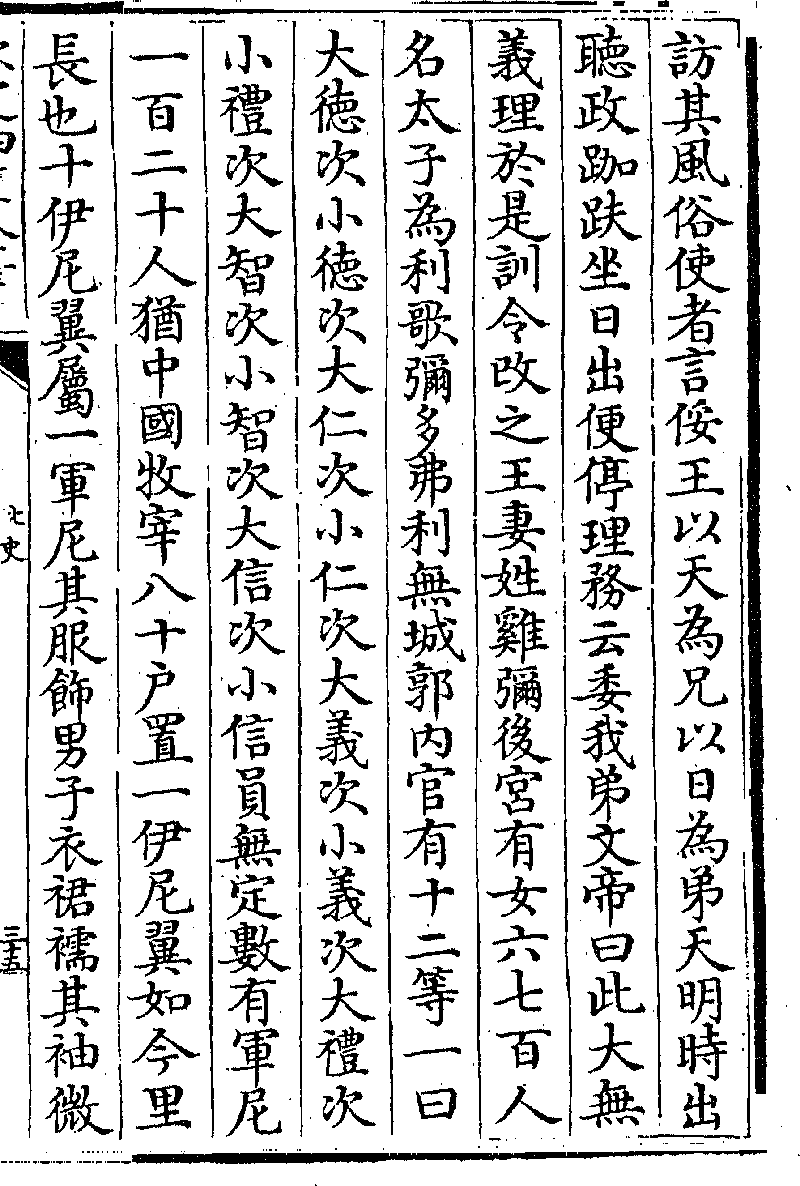 訪其風俗使者言俀王以天為兄以日為弟天明時出
聽政跏趺坐日出便停理務云委我弟文帝曰此大無
義理於是訓令改之王妻姓雞彌後宮有女六七百人
名太子為利歌彌多弗利無城郭内官有十二等一曰
大德次小德次大仁次小仁次大義次小義次大禮次
小禮次大智次小智次大信次小信員無定數有軍尼
一百二十人猶中國牧宰八十户置一伊尼翼如今里
長也十伊尼翼屬一軍尼其服飾男子衣裙襦其袖微
七史
三十五